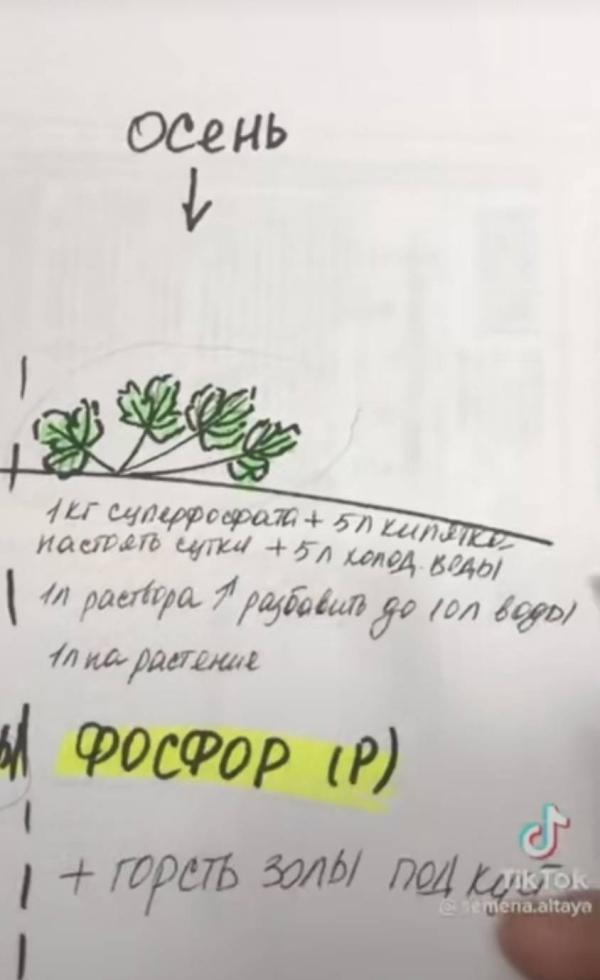 Осень
1кг суперфосфата + 5л кипятка
настоять сутки + 5л холод. воды
1л раствора ↑ разбавить до 10л воды
1л на растение
ФОСФОР (Р)
+ горсть золы под куст
TikTok
@semena.altaya